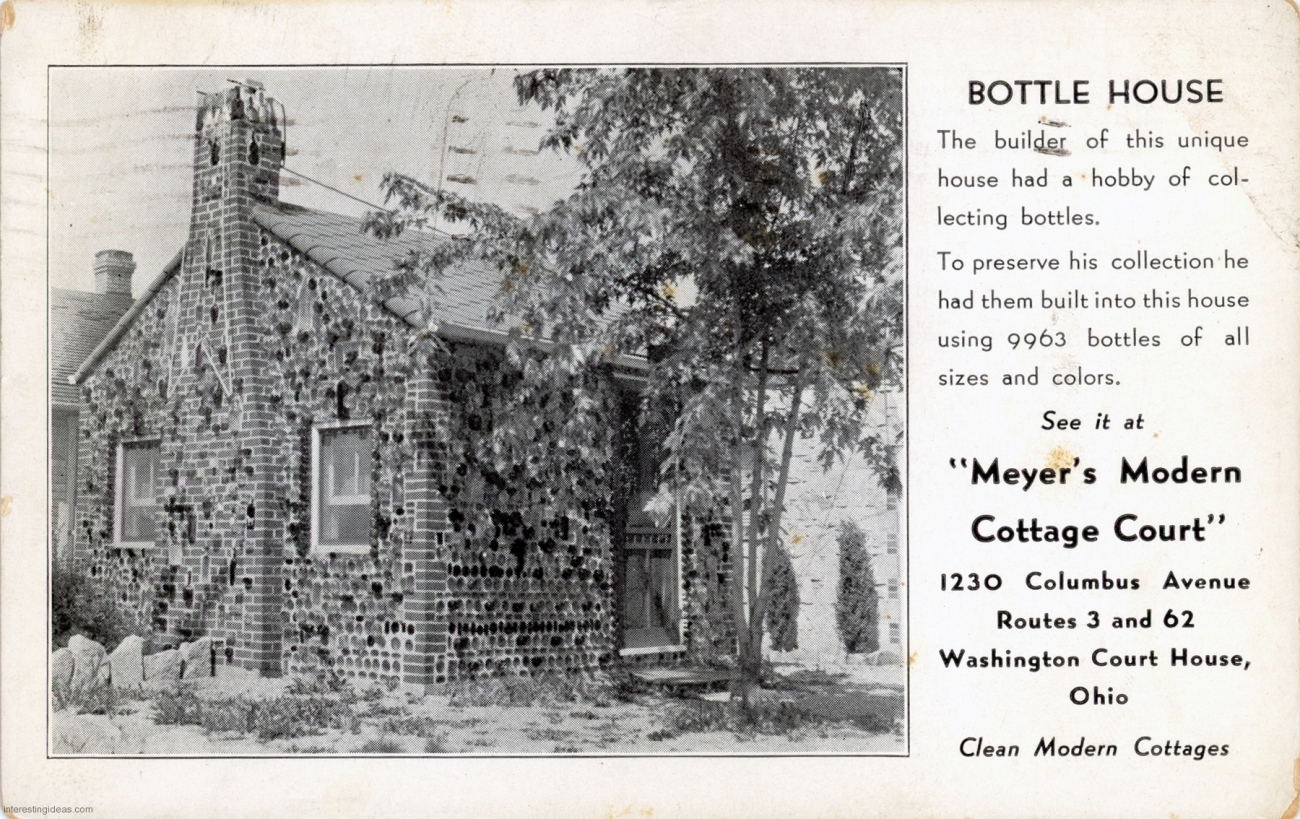 BOTTLE HOUSE
The builder of this unique
house had a hobby of col-
lecting bottles.
To preserve his collection he
had them built into this house
using 9963 bottles of all
sizes and colors.
See it at
"Meyer's Modern
Cottage Court"
1230 Columbus Avenue
Routes 3 and 62
Washington Court House,
Ohio
Clean Modern Cottages
interestingideas.com